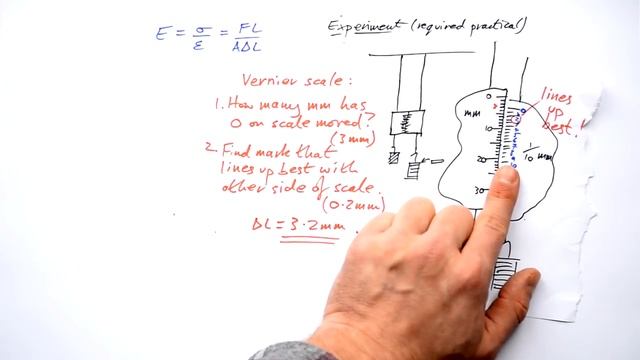 E = σ/ε = FL/AΔL
Experiment (required practical)
Vernier scale:
1. How many mm has
0 on scale moved?
(3mm)
2. Find mark that
lines up best with
other side of scale.
(0.2mm)
ΔL = 3.2mm
lines
up
best!
0
mm
10
20
30
0
1/10 mm